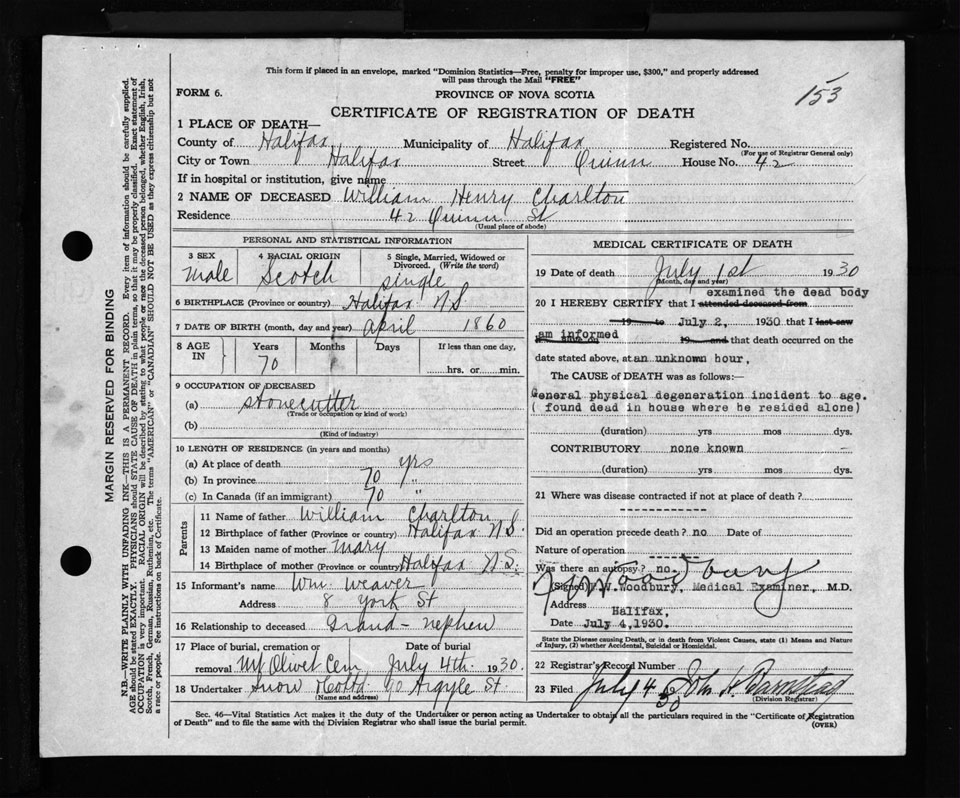 This form if placed in an envelope, marked "Dominion Statistics—Free, penalty for improper use, $300," and properly addressed
will pass through the Mail "FREE"
FORM 6.
PROVINCE OF NOVA SCOTIA
153
CERTIFICATE OF REGISTRATION OF DEATH
1 PLACE OF DEATH—
County of Halifax Municipality of Halifax Registered No.
(For use of Registrar General only)
City or Town Halifax Street Quinn House No. 42
If in hospital or institution, give name
2 NAME OF DECEASED William Henry Charlton
Residence 42 Quinn St
(Usual place of abode)
PERSONAL AND STATISTICAL INFORMATION
3 SEX male
4 RACIAL ORIGIN Scotch
5 Single, Married, Widowed or
Divorced. (Write the word)
single
6 BIRTHPLACE (Province or country) Halifax N S
7 DATE OF BIRTH (month, day and year) April 1860
8 AGE IN
Years Months Days If less than one day,
70 hrs. or min.
9 OCCUPATION OF DECEASED
(a) stonecutter
(Trade or occupation or kind of work)
(b)
(Kind of industry)
10 LENGTH OF RESIDENCE (in years and months)
(a) At place of death yrs
(b) In province 70 "
(c) In Canada (if an immigrant) 70 "
Parents
11 Name of father William Charlton
12 Birthplace of father (Province or country) Halifax N S.
13 Maiden name of mother Mary
14 Birthplace of mother (Province or country) Halifax N S.
15 Informant's name Wm. Weaver
Address 8 York St
16 Relationship to deceased Grand-nephew
17 Place of burial, cremation or Date of burial
removal Mt Olivet Cem July 4th 1930.
18 Undertaker Snow & Co Ltd 90 Argyle St
(Name and address)
MEDICAL CERTIFICATE OF DEATH
19 Date of death July 1st 1930
(Month, day and year)
examined the dead body
20 I HEREBY CERTIFY that I attended deceased from
19 to July 2, 1930 that I last saw
am informed
19 and that death occurred on the
date stated above, at an unknown hour,
The CAUSE of DEATH was as follows:—
General physical degeneration incident to age.
( found dead in house where he resided alone)
(duration) yrs mos dys.
CONTRIBUTORY none known
(duration) yrs mos dys.
21 Where was disease contracted if not at place of death?
Did an operation precede death? no Date of
Nature of operation
Was there an autopsy? no.
(Signed) W.Woodbury, Medical Examiner., M.D.
Address Halifax,
Date July 4,1930.
State the Disease causing Death, or in death from Violent Causes, state (1) Means and Nature
of Injury, (2) whether Accidental, Suicidal or Homicidal.
22 Registrar's Record Number
23 Filed July 4 30 John H Barnstead
(Division Registrar)
Sec. 46—Vital Statistics Act makes it the duty of the Undertaker or person acting as Undertaker to obtain all the particulars required in the "Certificate of Registration
of Death" and to file the same with the Division Registrar who shall issue the burial permit.
(OVER)
MARGIN RESERVED FOR BINDING
N.B.—WRITE PLAINLY WITH UNFADING INK—THIS IS A PERMANENT RECORD. Every item of information should be carefully supplied.
AGE should be stated EXACTLY. PHYSICIANS should STATE CAUSE OF DEATH in plain terms, so that it may be properly classified. Exact statement of
OCCUPATION is very important. RACIAL ORIGIN will be described by stating to what people or race the deceased person belonged, whether English, Irish,
Scotch, French, German, Russian, Ruthenian, etc. The terms "AMERICAN" or "CANADIAN" SHOULD NOT BE USED as they express citizenship but not
a race or people. See instructions on back of Certificate.